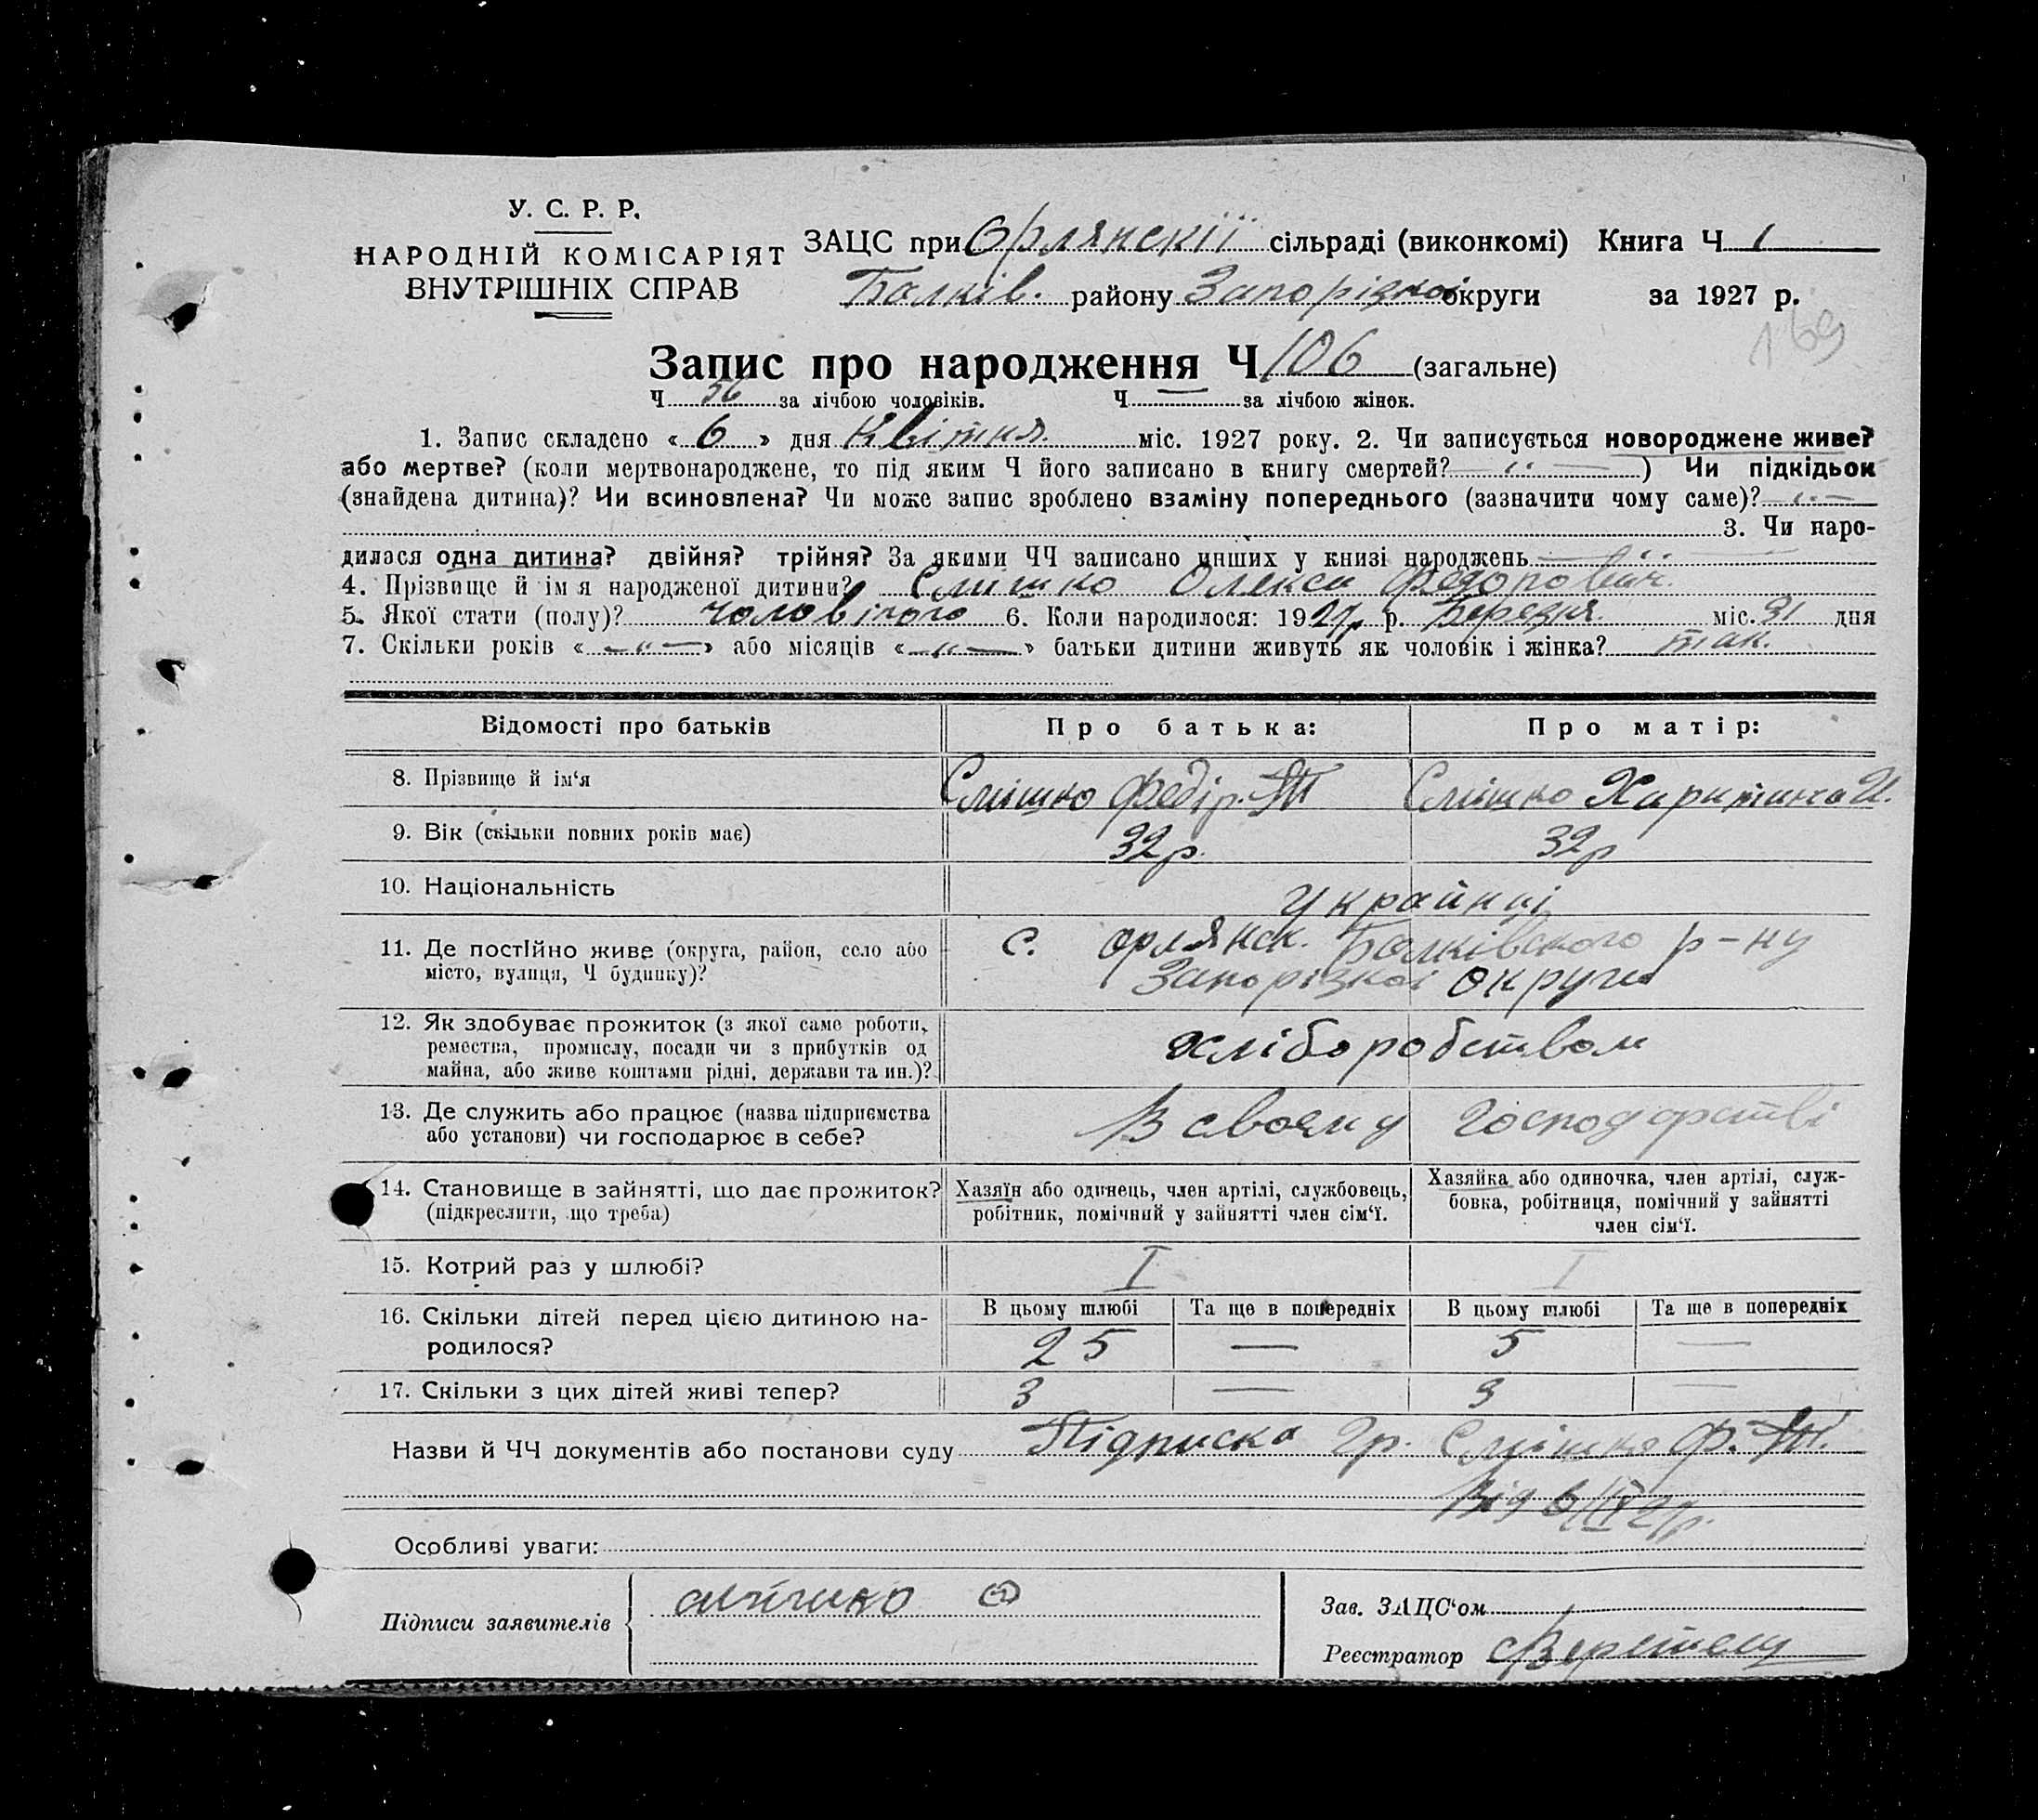 У. С. Р. Р.
НАРОДНІЙ КОМІСАРІЯТ
ВНУТРІШНІХ СПРАВ
ЗАЦС при Орлянскії сільраді (виконкомі) Книга Ч 1
Балків. району Запорізкоі округи за 1927 р.
169
Запис про народження Ч 106 (загальне)
Ч 56 за лічбою чоловіків. Ч — за лічбою жінок.
1. Запис складено « 6 » дня Квітня міс. 1927 року. 2. Чи записується новороджене живе?
або мертве? (коли мертвонароджене, то під яким Ч його записано в книгу смертей? „ — ) Чи підкідьок
(знайдена дитина)? Чи всиновлена? Чи може запис зроблено взаміну попереднього (зазначити чому саме)? „ —
3. Чи наро-
дилася одна дитина? двійня? трійня? За якими ЧЧ записано инших у книзі народжень — „ —
4. Прізвище й ім я народженої дитини? Слішко Олекси Федорович.
5. Якої стати (полу)? чоловічого 6. Коли народилося: 1927р. р. Березня. міс. 31 дня
7. Скільки років « — „ — » або місяців « — „ — » батьки дитини живуть як чоловік і жінка? так.
Відомості про батьків Про батька: Про матір:
8. Прізвище й ім‘я Слішко Федір. Слішко Харитина И.
9. Вік (скільки повних років має) 32р. 32р
10. Національність Українці
11. Де постійно живе (округа, район, село або с. Орлянск. Балківского р-ну
місто, вулиця, Ч будинку)? Запорізкоі округи
12. Як здобуває прожиток (з якої саме роботи, хліборобством
ремества, промислу, посади чи з прибутків од
майна, або живе коштами рідні, держави та ин.)?
13. Де служить або працює (назва підприємства В своєму господарстві
або установи) чи господарює в себе?
14. Становище в зайнятті, що дає прожиток? Хазяїн або одинець, член артілі, службовець, Хазяйка або одиночка, член артілі, служ-
(підкреслити, що треба) робітник, помічний у зайнятті член сім‘ї. бовка, робітниця, помічний у зайнятті
член сім‘ї.
15. Котрий раз у шлюбі? I I
16. Скільки дітей перед цією дитиною на- В цьому шлюбі Та ще в попередніх В цьому шлюбі Та ще в попередніх
родилося? 2 5 — 5 —
17. Скільки з цих дітей живі тепер? 3 — 3 —
Назви й ЧЧ документів або постанови суду Підписка гр. Слішко Ф.
Від 6/IV 27р.
Особливі уваги:
Підписи заявителів Зав. ЗАЦС‘ом
Реєстратор